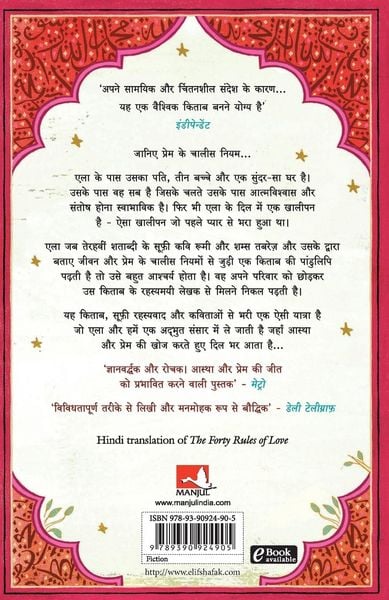 'अपने सामयिक और चिंतनशील संदेश के कारण...
यह एक वैश्विक किताब बनने योग्य है'
इंडीपेन्डेंट
जानिए प्रेम के चालीस नियम...
एला के पास उसका पति, तीन बच्चे और एक सुंदर-सा घर है।
उसके पास वह सब है जिसके चलते उसके पास आत्मविश्वास और
संतोष होना स्वाभाविक है। फिर भी एला के दिल में एक खालीपन
है - ऐसा खालीपन जो पहले प्यार से भरा हुआ था।
एला जब तेरहवीं शताब्दी के सूफ़ी कवि रूमी और शम्स तबरेज़ और उसके द्वारा
बताए जीवन और प्रेम के चालीस नियमों से जुड़ी एक किताब की पांडुलिपि
पढ़ती है तो उसे बहुत आश्चर्य होता है। वह अपने परिवार को छोड़कर
उस किताब के रहस्यमयी लेखक से मिलने निकल पड़ती है।
यह किताब, सूफ़ी रहस्यवाद और कविताओं से भरी एक ऐसी यात्रा है
जो एला और हमें एक अद्भुत संसार में ले जाती है जहाँ आस्था
और प्रेम की खोज करते हुए दिल भर आता है...
'ज्ञानवर्द्धक और रोचक। आस्था और प्रेम की जीत
को प्रभावित करने वाली पुस्तक' - मेट्रो
'विविधतापूर्ण तरीके से लिखी और मनमोहक रूप से बौद्धिक' - डेली टेलीग्राफ़
Hindi translation of The Forty Rules of Love
MANJUL
www.manjulindia.com
ISBN 978-93-90924-90-5
9 789390 924905
Fiction
e Book
available
http://www.elifshafak.com